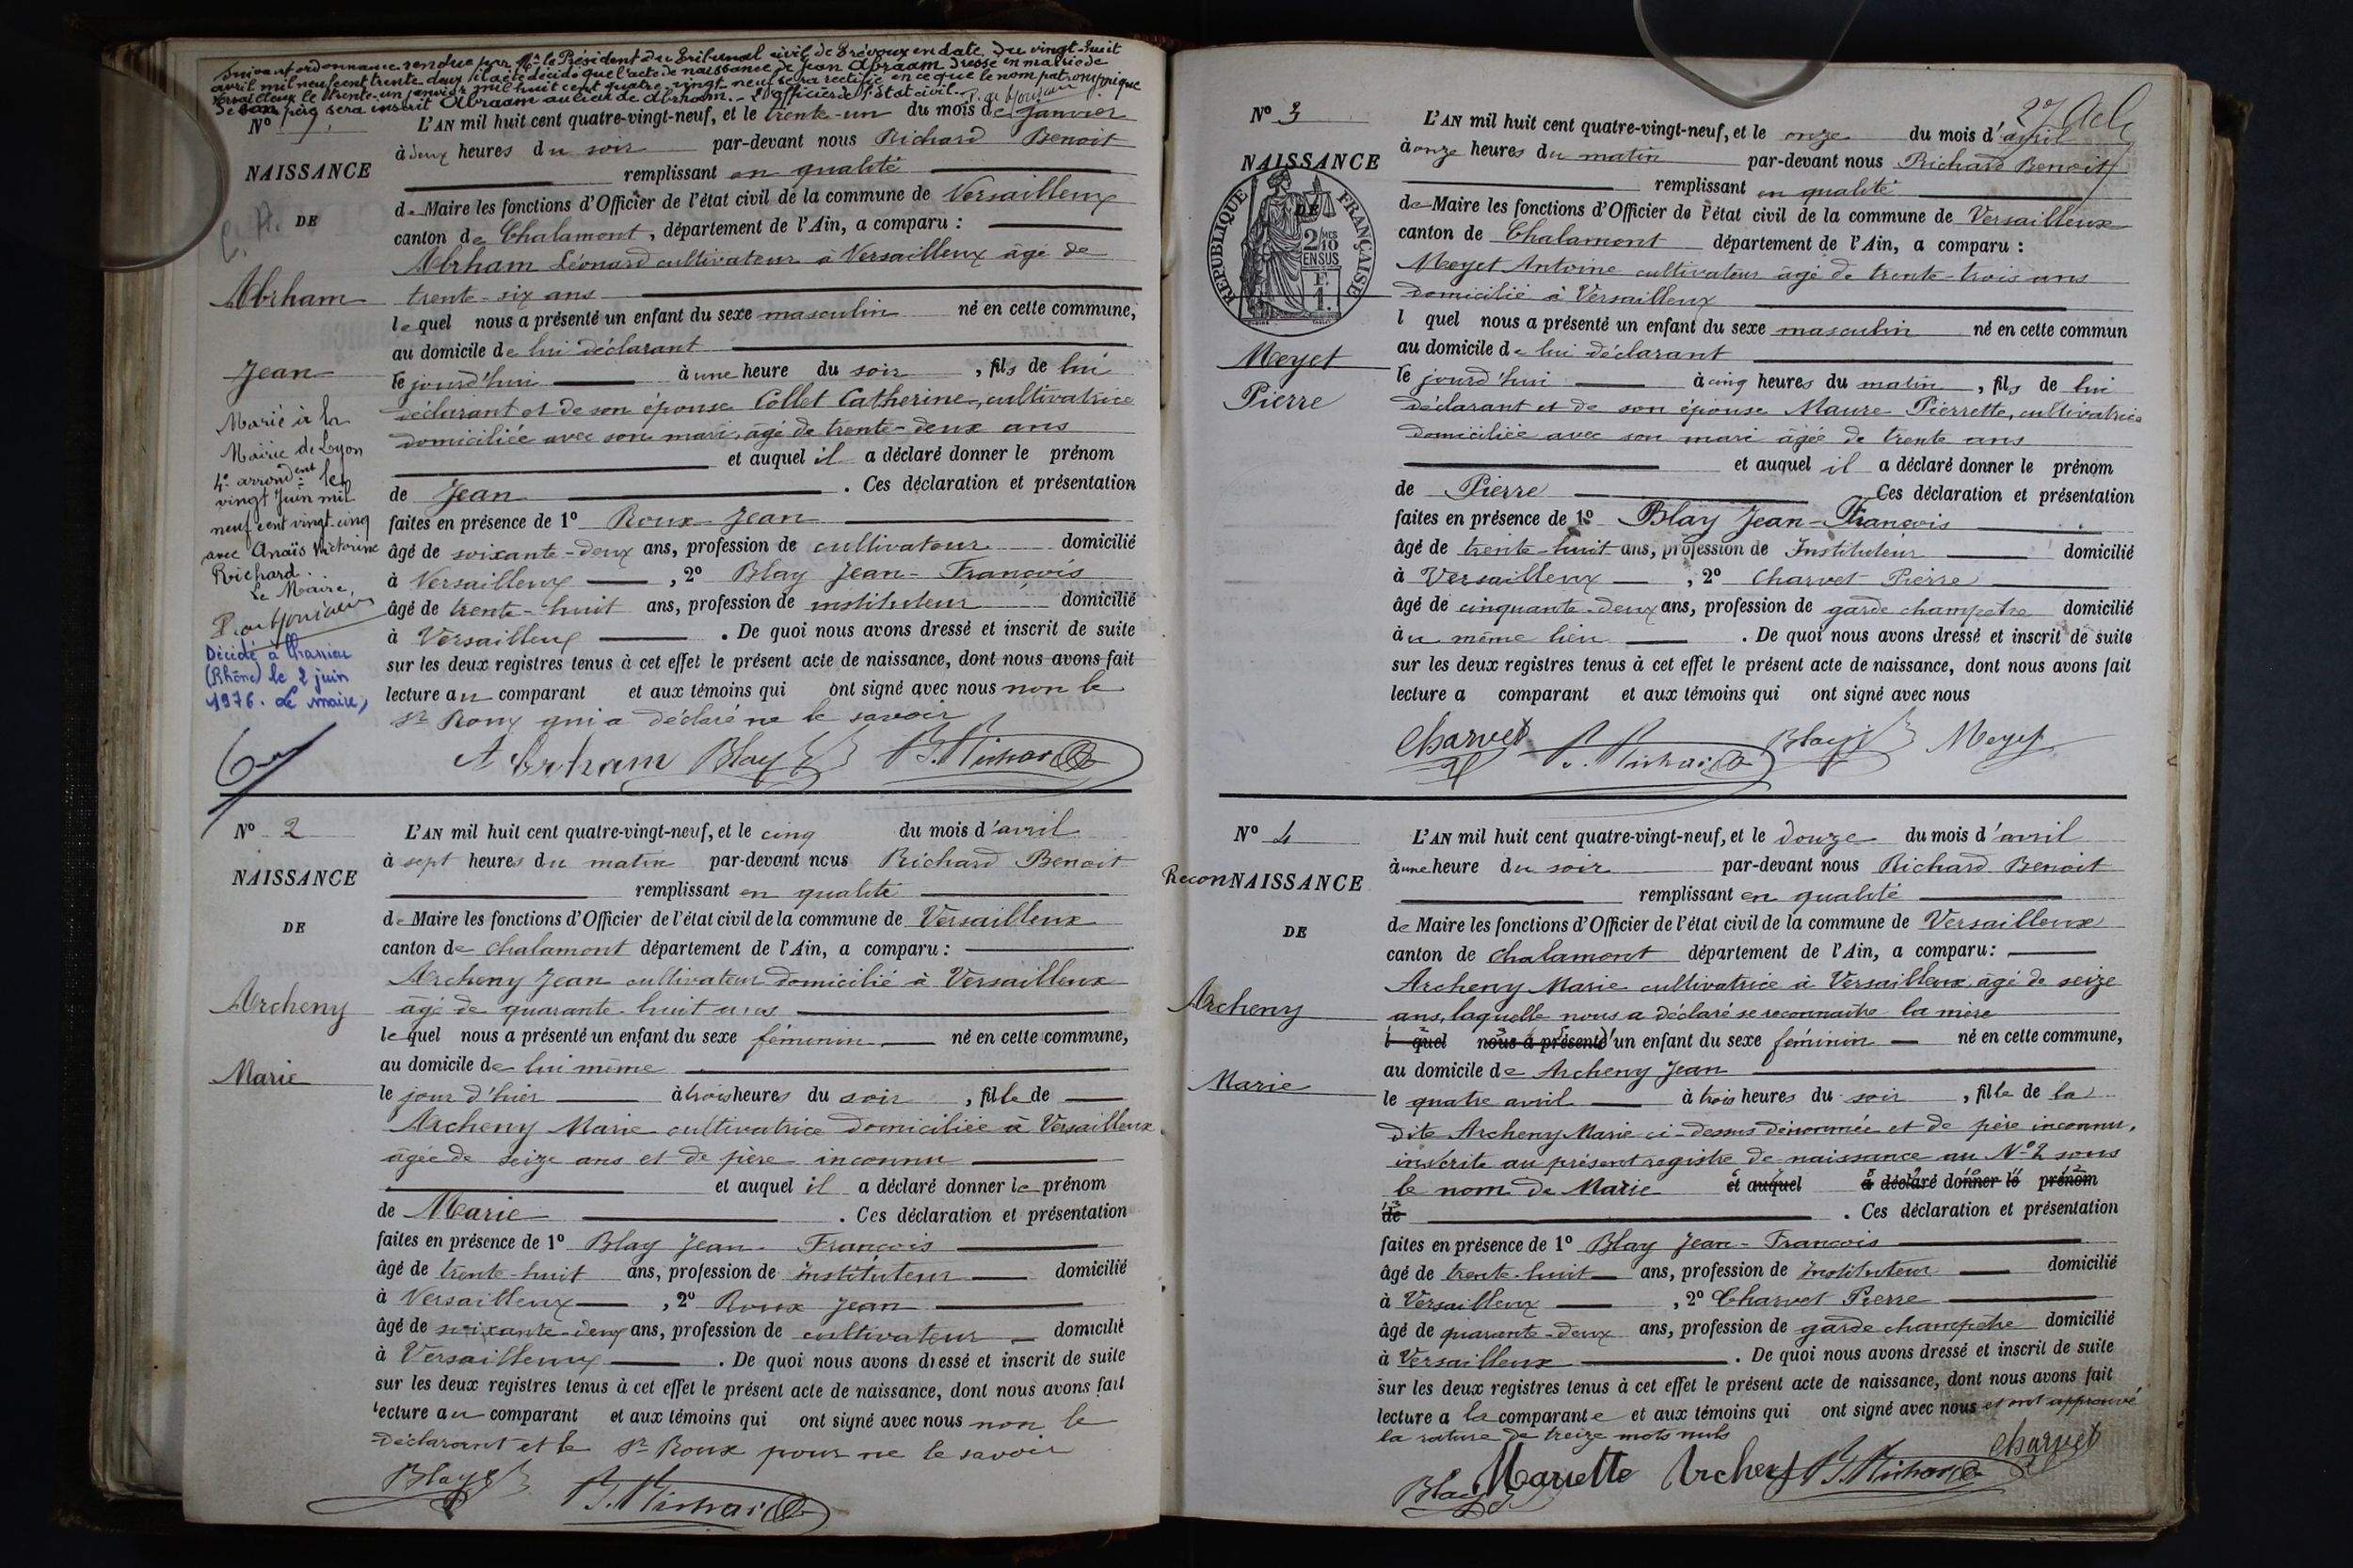 Suivant ordonnance rendue par Mr le Président du Tribunal civil de Trévoux en date du vingt-huit
avril mil neuf cent trente deux il a été décidé que l'acte de naissance de Jean Abraam dressé en mairie de
Versailleux le trente-un janvier mil huit cent quatre vingt neuf sera rectifié en ce que le nom patronymique
de son père sera inscrit Abraam au lieu de Abrham. - L'officier de l'état civil.
No 1
NAISSANCE
DE
Abrham
Jean
Marié à la
Mairie de Lyon
4e arrondent le
vingt Juin mil
neuf cent vingt-cinq
avec Anaïs Victorine
Richard.
Le Maire,
Décédé à
(Rhône) le 2 juin
1976. Le maire,
L'AN mil huit cent quatre-vingt-neuf, et le trente-un du mois de Janvier
à deux heures du soir par-devant nous Richard Benoit
remplissant en qualité
de Maire les fonctions d'Officier de l'état civil de la commune de Versailleux
canton de Chalamont, département de l'Ain, a comparu :
Abrham Léonard cultivateur à Versailleux âgé de
trente-six ans
lequel nous a présenté un enfant du sexe masculin né en cette commune,
au domicile de lui déclarant
le jourd'hui à une heure du soir, fils de lui
déclarant et de son épouse Collet Catherine, cultivatrice
domiciliée avec son mari, âgé de trente-deux ans
et auquel il a déclaré donner le prénom
de Jean. Ces déclaration et présentation
faites en présence de 1o Roux Jean
âgé de soixante-deux ans, profession de cultivateur domicilié
à Versailleux, 2o Blay Jean-François
âgé de trente-huit ans, profession de instituteur domicilié
à Versailleux. De quoi nous avons dressé et inscrit de suite
sur les deux registres tenus à cet effet le présent acte de naissance, dont nous avons fait
lecture au comparant et aux témoins qui ont signé avec nous non le
Sr Roux qui a déclaré ne le savoir
Abrham Blay B. Richard
No 2
NAISSANCE
DE
Archeny
Marie
L'AN mil huit cent quatre-vingt-neuf, et le cinq du mois d'avril
à sept heures du matin par-devant nous Richard Benoit
remplissant en qualité
de Maire les fonctions d'Officier de l'état civil de la commune de Versailleux
canton de Chalamont département de l'Ain, a comparu :
Archeny Jean cultivateur domicilié à Versailleux
âgé de quarante-huit ans
lequel nous a présenté un enfant du sexe féminin né en cette commune,
au domicile de lui même
le jour d'hier à trois heures du soir, fille de
Archeny Marie cultivatrice domiciliée à Versailleux
âgée de seize ans et de père inconnu
et auquel il a déclaré donner le prénom
de Marie. Ces déclaration et présentation
faites en présence de 1o Blay Jean-François
âgé de trente-huit ans, profession de instituteur domicilié
à Versailleux, 2o Roux Jean
âgé de soixante-deux ans, profession de cultivateur domicilié
à Versailleux. De quoi nous avons dressé et inscrit de suite
sur les deux registres tenus à cet effet le présent acte de naissance, dont nous avons fait
lecture au comparant et aux témoins qui ont signé avec nous non le
déclarant et le Sr Roux pour ne le savoir
Blay B. Richard
No 3
NAISSANCE
DE
RÉPUBLIQUE FRANÇAISE
2/10 MES
EN SUS
Meyet
Pierre
L'AN mil huit cent quatre-vingt-neuf, et le onze du mois d'avril
à onze heures du matin par-devant nous Richard Benoit
remplissant en qualité
de Maire les fonctions d'Officier de l'état civil de la commune de Versailleux
canton de Chalamont département de l'Ain, a comparu :
Meyet Antoine cultivateur âgé de trente-trois ans
domicilié à Versailleux
l quel nous a présenté un enfant du sexe masculin né en cette commun
au domicile de lui déclarant
le jourd'hui à cinq heures du matin, fils de lui
déclarant et de son épouse Maure Pierrette, cultivatrice
domiciliée avec son mari âgée de trente ans
et auquel il a déclaré donner le prénom
de Pierre Ces déclaration et présentation
faites en présence de 1o Blay Jean-François
âgé de trente-huit ans, profession de Instituteur domicilié
à Versailleux, 2o Charvet Pierre
âgé de cinquante-deux ans, profession de garde champêtre domicilié
àu même lieu. De quoi nous avons dressé et inscrit de suite
sur les deux registres tenus à cet effet le présent acte de naissance, dont nous avons fait
lecture a comparant et aux témoins qui ont signé avec nous
Charvet B. Richard Blay Meyet
No 4
ReconNAISSANCE
DE
Archeny
Marie
L'AN mil huit cent quatre-vingt-neuf, et le douze du mois d'avril
à une heure du soir par-devant nous Richard Benoit
remplissant en qualité
de Maire les fonctions d'Officier de l'état civil de la commune de Versailleux
canton de Chalamont département de l'Ain, a comparu :
Archeny Marie cultivatrice à Versailleux âgé de seize
ans, laquelle nous a déclaré se reconnaître la mère
l quel nous a présenté d'un enfant du sexe féminin né en cette commune,
au domicile de Archeny Jean
le quatre avril à trois heures du soir, fille de la
dite Archeny Marie ci-dessus dénommée et de père inconnu,
inscrite au présent registre de naissance au No 2 sous
le nom de Marie et auquel a déclaré donner le prénom
de. Ces déclaration et présentation
faites en présence de 1o Blay Jean-François
âgé de trente-huit ans, profession de Instituteur domicilié
à Versailleux, 2o Charvet Pierre
âgé de quarante-deux ans, profession de garde champêtre domicilié
à Versailleux. De quoi nous avons dressé et inscrit de suite
sur les deux registres tenus à cet effet le présent acte de naissance, dont nous avons fait
lecture a la comparante et aux témoins qui ont signé avec nous et ont approuvé
la rature de treize mots nuls
Charvet
Blay Mariette Archeny B. Richard